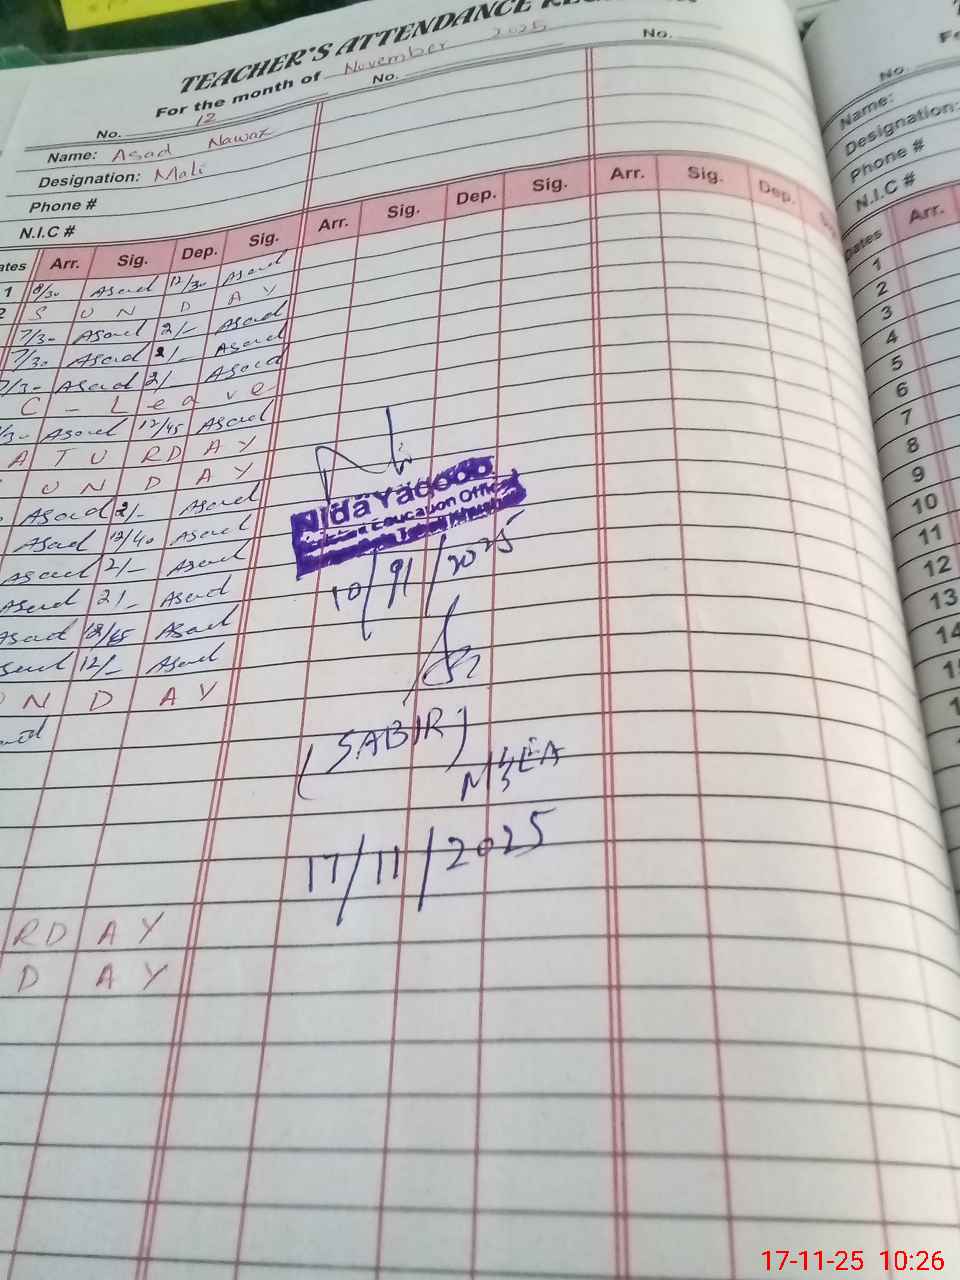 TEACHER'S ATTENDANCE
For the month of November 2025
No. 12 No. No.
Name: Asad Nawaz
Designation: Mali
Phone #
N.I.C #
Arr. Sig. Dep. Sig. Arr. Sig. Dep. Sig. Arr. Sig. Dep.
1 8/30 Asad 12/30 Asad
2 S U N D A Y
7/30 Asad 2/- Asad
7/30 Asad 2/- Asad
7/30 Asad 2/- Asad
C - L e a v e
/30 Asad 12/45 Asad
A T U R D A Y
U N D A Y
Asad 2/- Asad
Asad 12/40 Asad
Asad 2/- Asad
Asad 2/- Asad
Asad Asad
Asad 12/- Asad
N D A Y
R D A Y
D A Y
Nida Yaqoob
Education Officer
10/11/2025
(SABIR)
MEA
17/11/2025
No.
Name:
Designation:
Phone #
N.I.C #
Dates Arr.
1
2
3
4
5
6
7
8
9
10
11
12
13
14
17-11-25 10:26